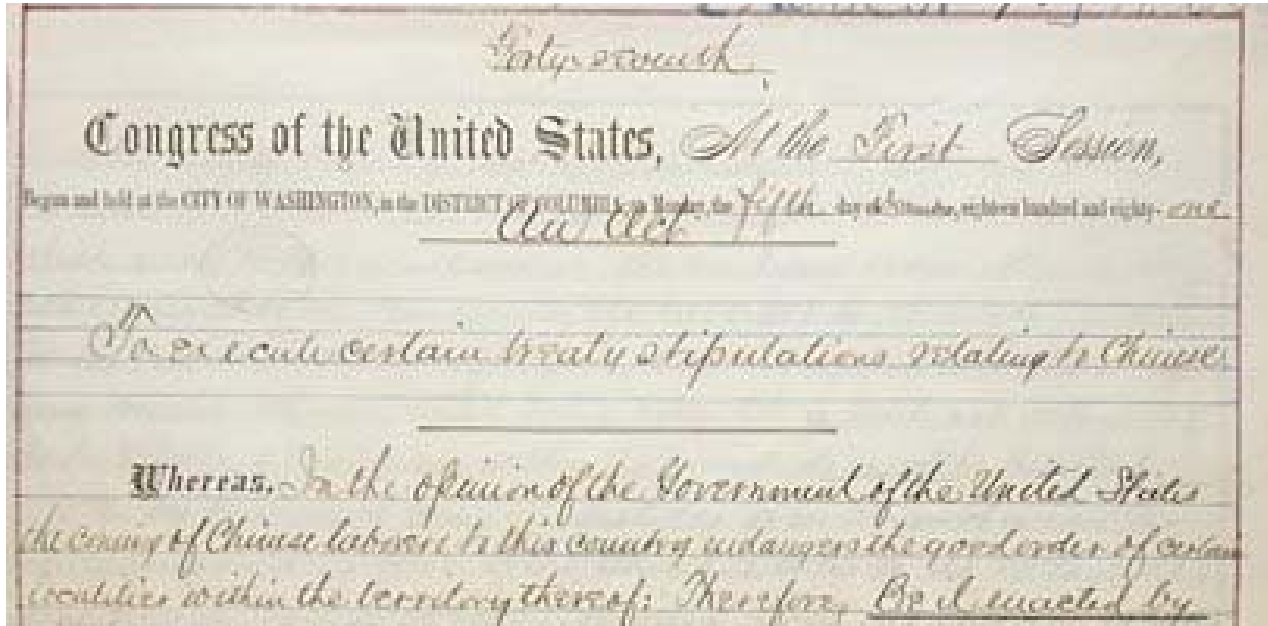 Forty-seventh
Congress of the United States, At the First Session,
Begun and held at the CITY OF WASHINGTON, in the DISTRICT OF COLUMBIA, on Monday, the fifth day of December, eighteen hundred and eighty-one
An Act
To execute certain treaty stipulations relating to Chinese.
Whereas, In the opinion of the Government of the United States
the coming of Chinese laborers to this country endangers the good order of certain
localities within the territory thereof: Therefore, Be it enacted by